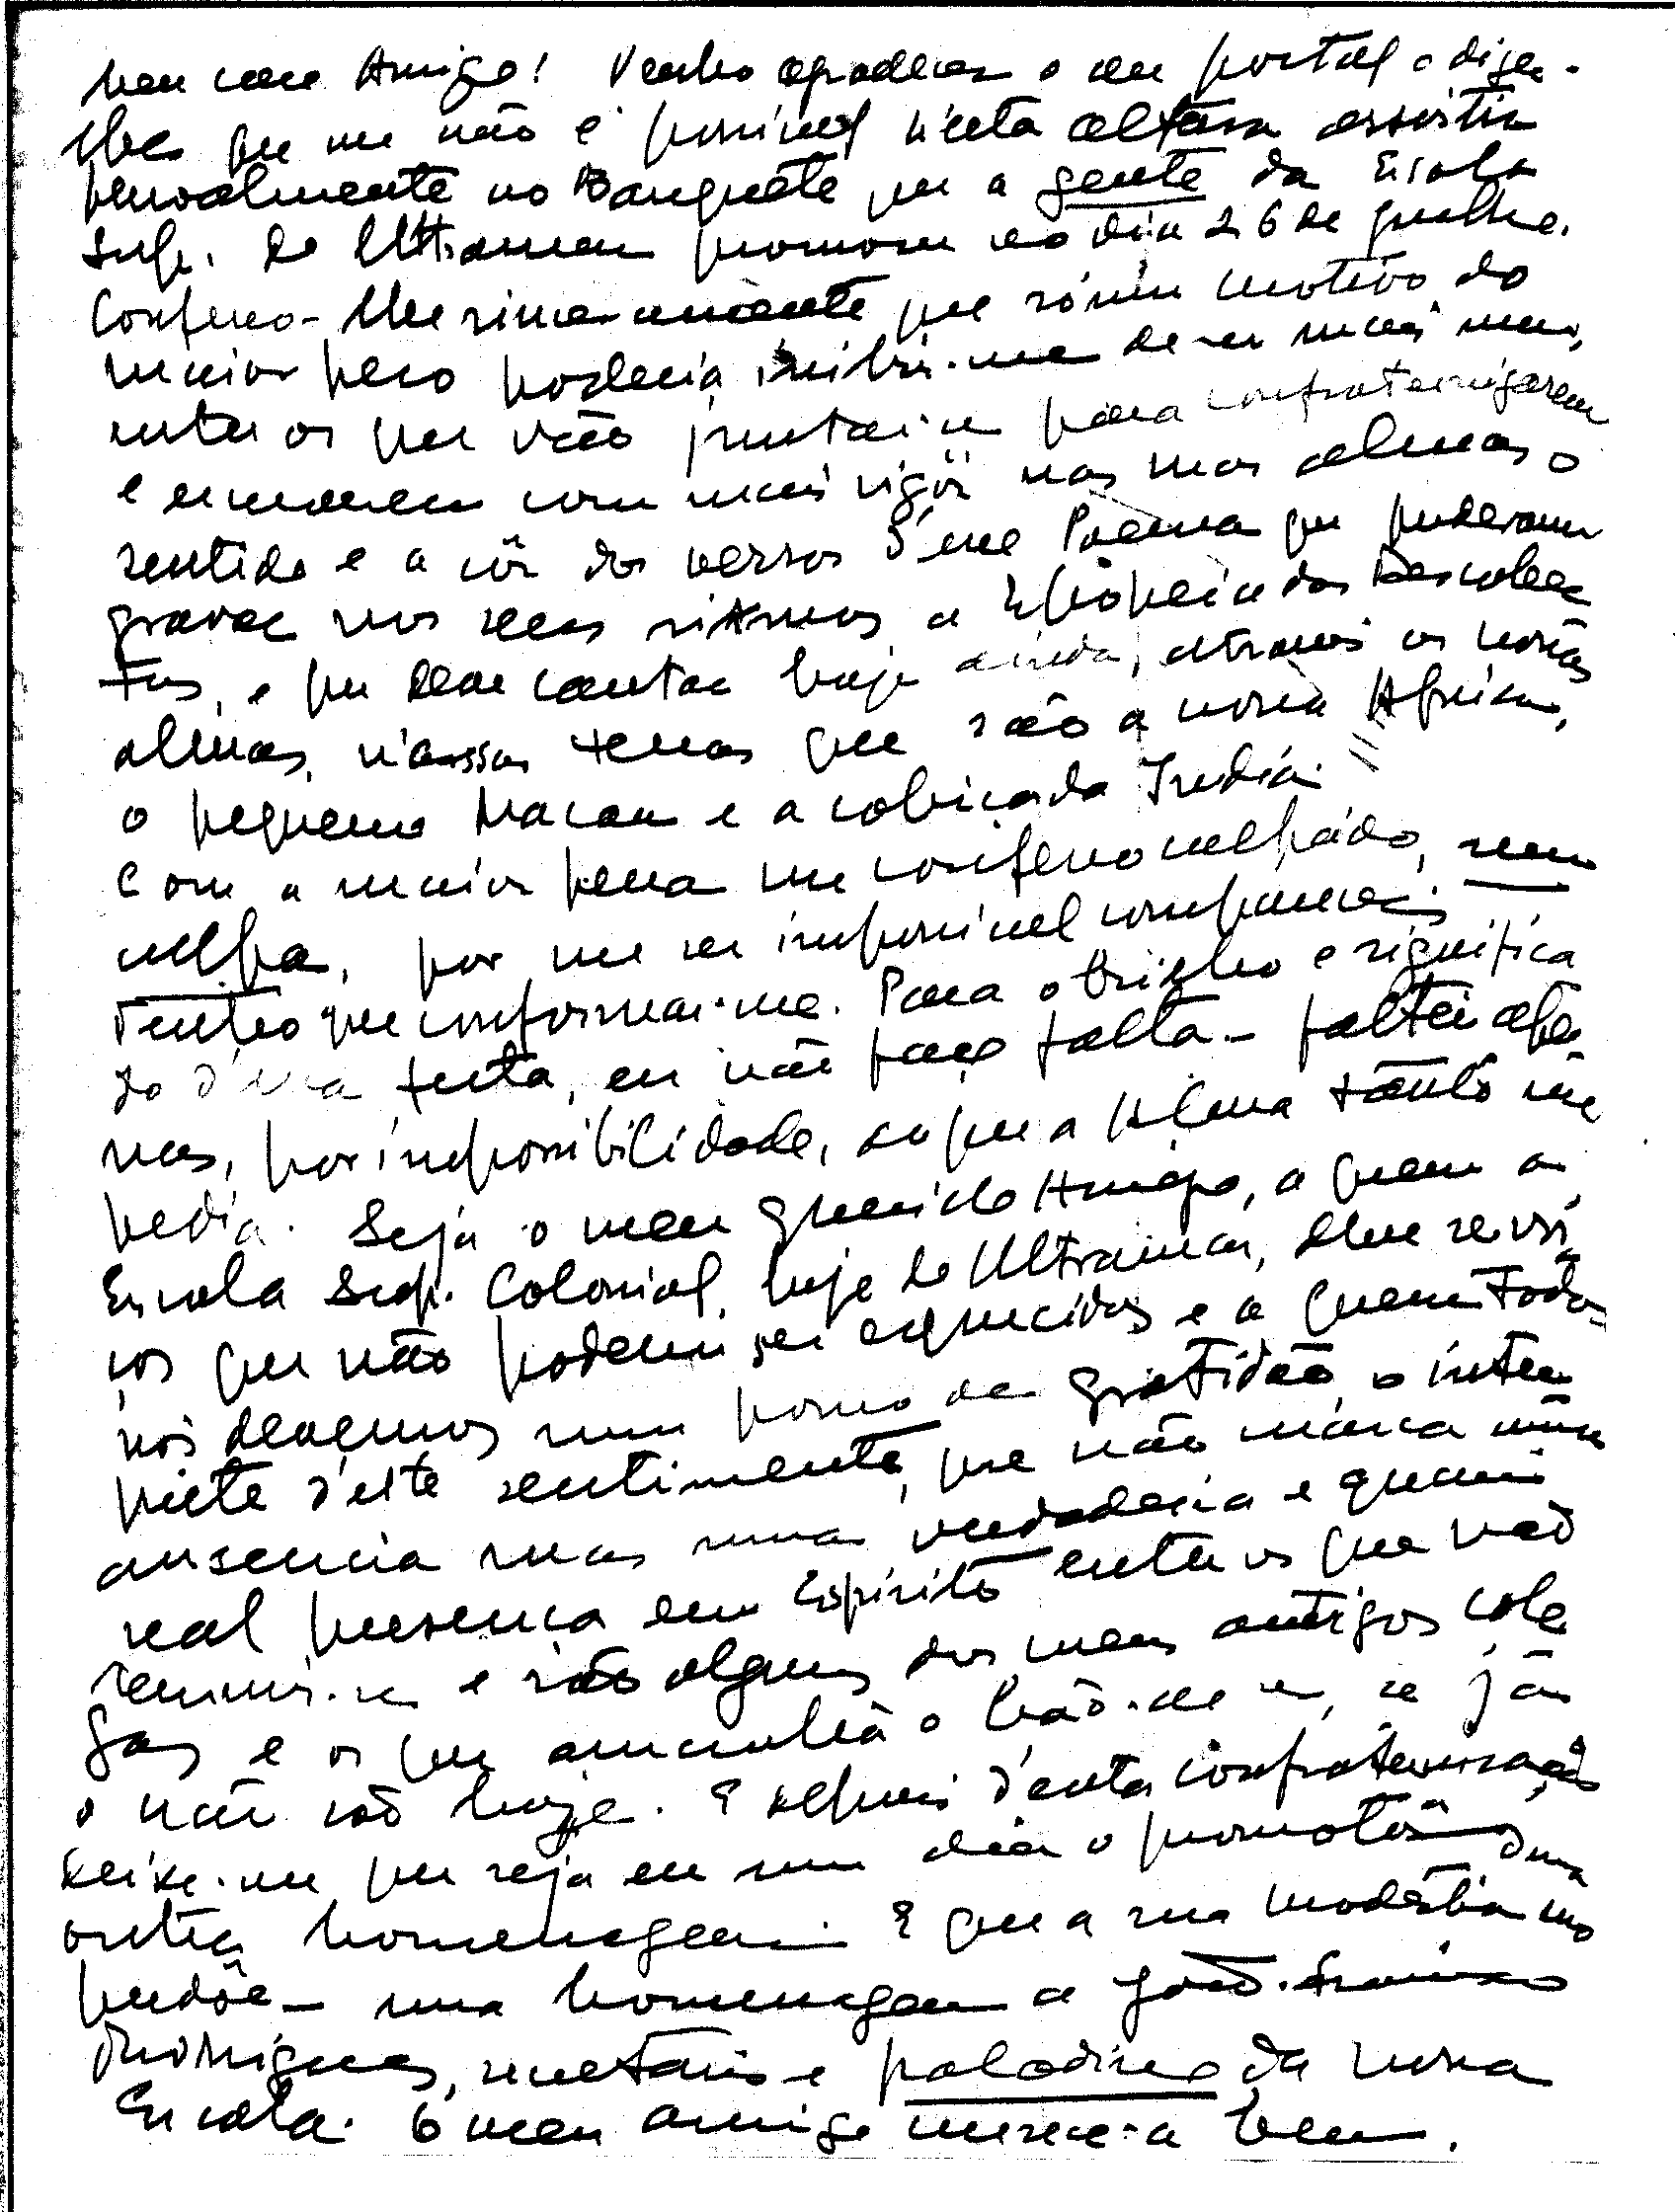 Meu caro Amigo! Venho agradecer o seu postal e dizer-
lhe que me não é possível n'esta altura assistir
pessoalmente no Banquete que a gente da Escola
Sup. do Ultramar promove no dia 26 de Julho.
Confesso-lhe sinceramente que só um motivo do
maior peso poderia inibir-me de ser mais um,
entre os que vão juntar-se para confraternizarem
e reviverem com mais vigôr nas suas almas o
sentido e a côr dos versos d'esse Poema que puderam
gravar nos seus ritmos a Epopeia das Descober
tas, e que deve cantar hoje ainda, através as nossas
almas, n'essas terras que são a nossa Africa,
o pequeno Macau e a cobiçada India.
Com a maior pena me confesso culpado, sem
culpa, por me ser impossivel comparecer.
Tenho que conformar-me. Para o brilho e significa
do d'essa festa, eu não faço falta - faltei ape
nas, por impossibilidade, ao que a Alma tanto me
pedia. Seja o meu querido Amigo, a quem a
Escola Sup. Colonial, hoje do Ultramar, deve servi
ços que não podem ser esquecidos e a quem todos
nós devemos um pouco de gratidão, o intér
prete d'este sentimento, que não marca uma
ausencia mas uma verdadeira e quasi
real presença em Espirito entre os que vão
reunir-se e são alguns dos meus antigos cole
gas e os que amanhã o hão-de ser, se já
o não são hoje. E depois d'esta confraternisação
deixe-me que seja eu um dia o promotôr duma
outra homenagem. E que a sua modéstia me
perdôe - uma homenagem a João Francisco
Rodrigues, secretario e paladino da nossa
Escola. O meu amigo merece-a bem.